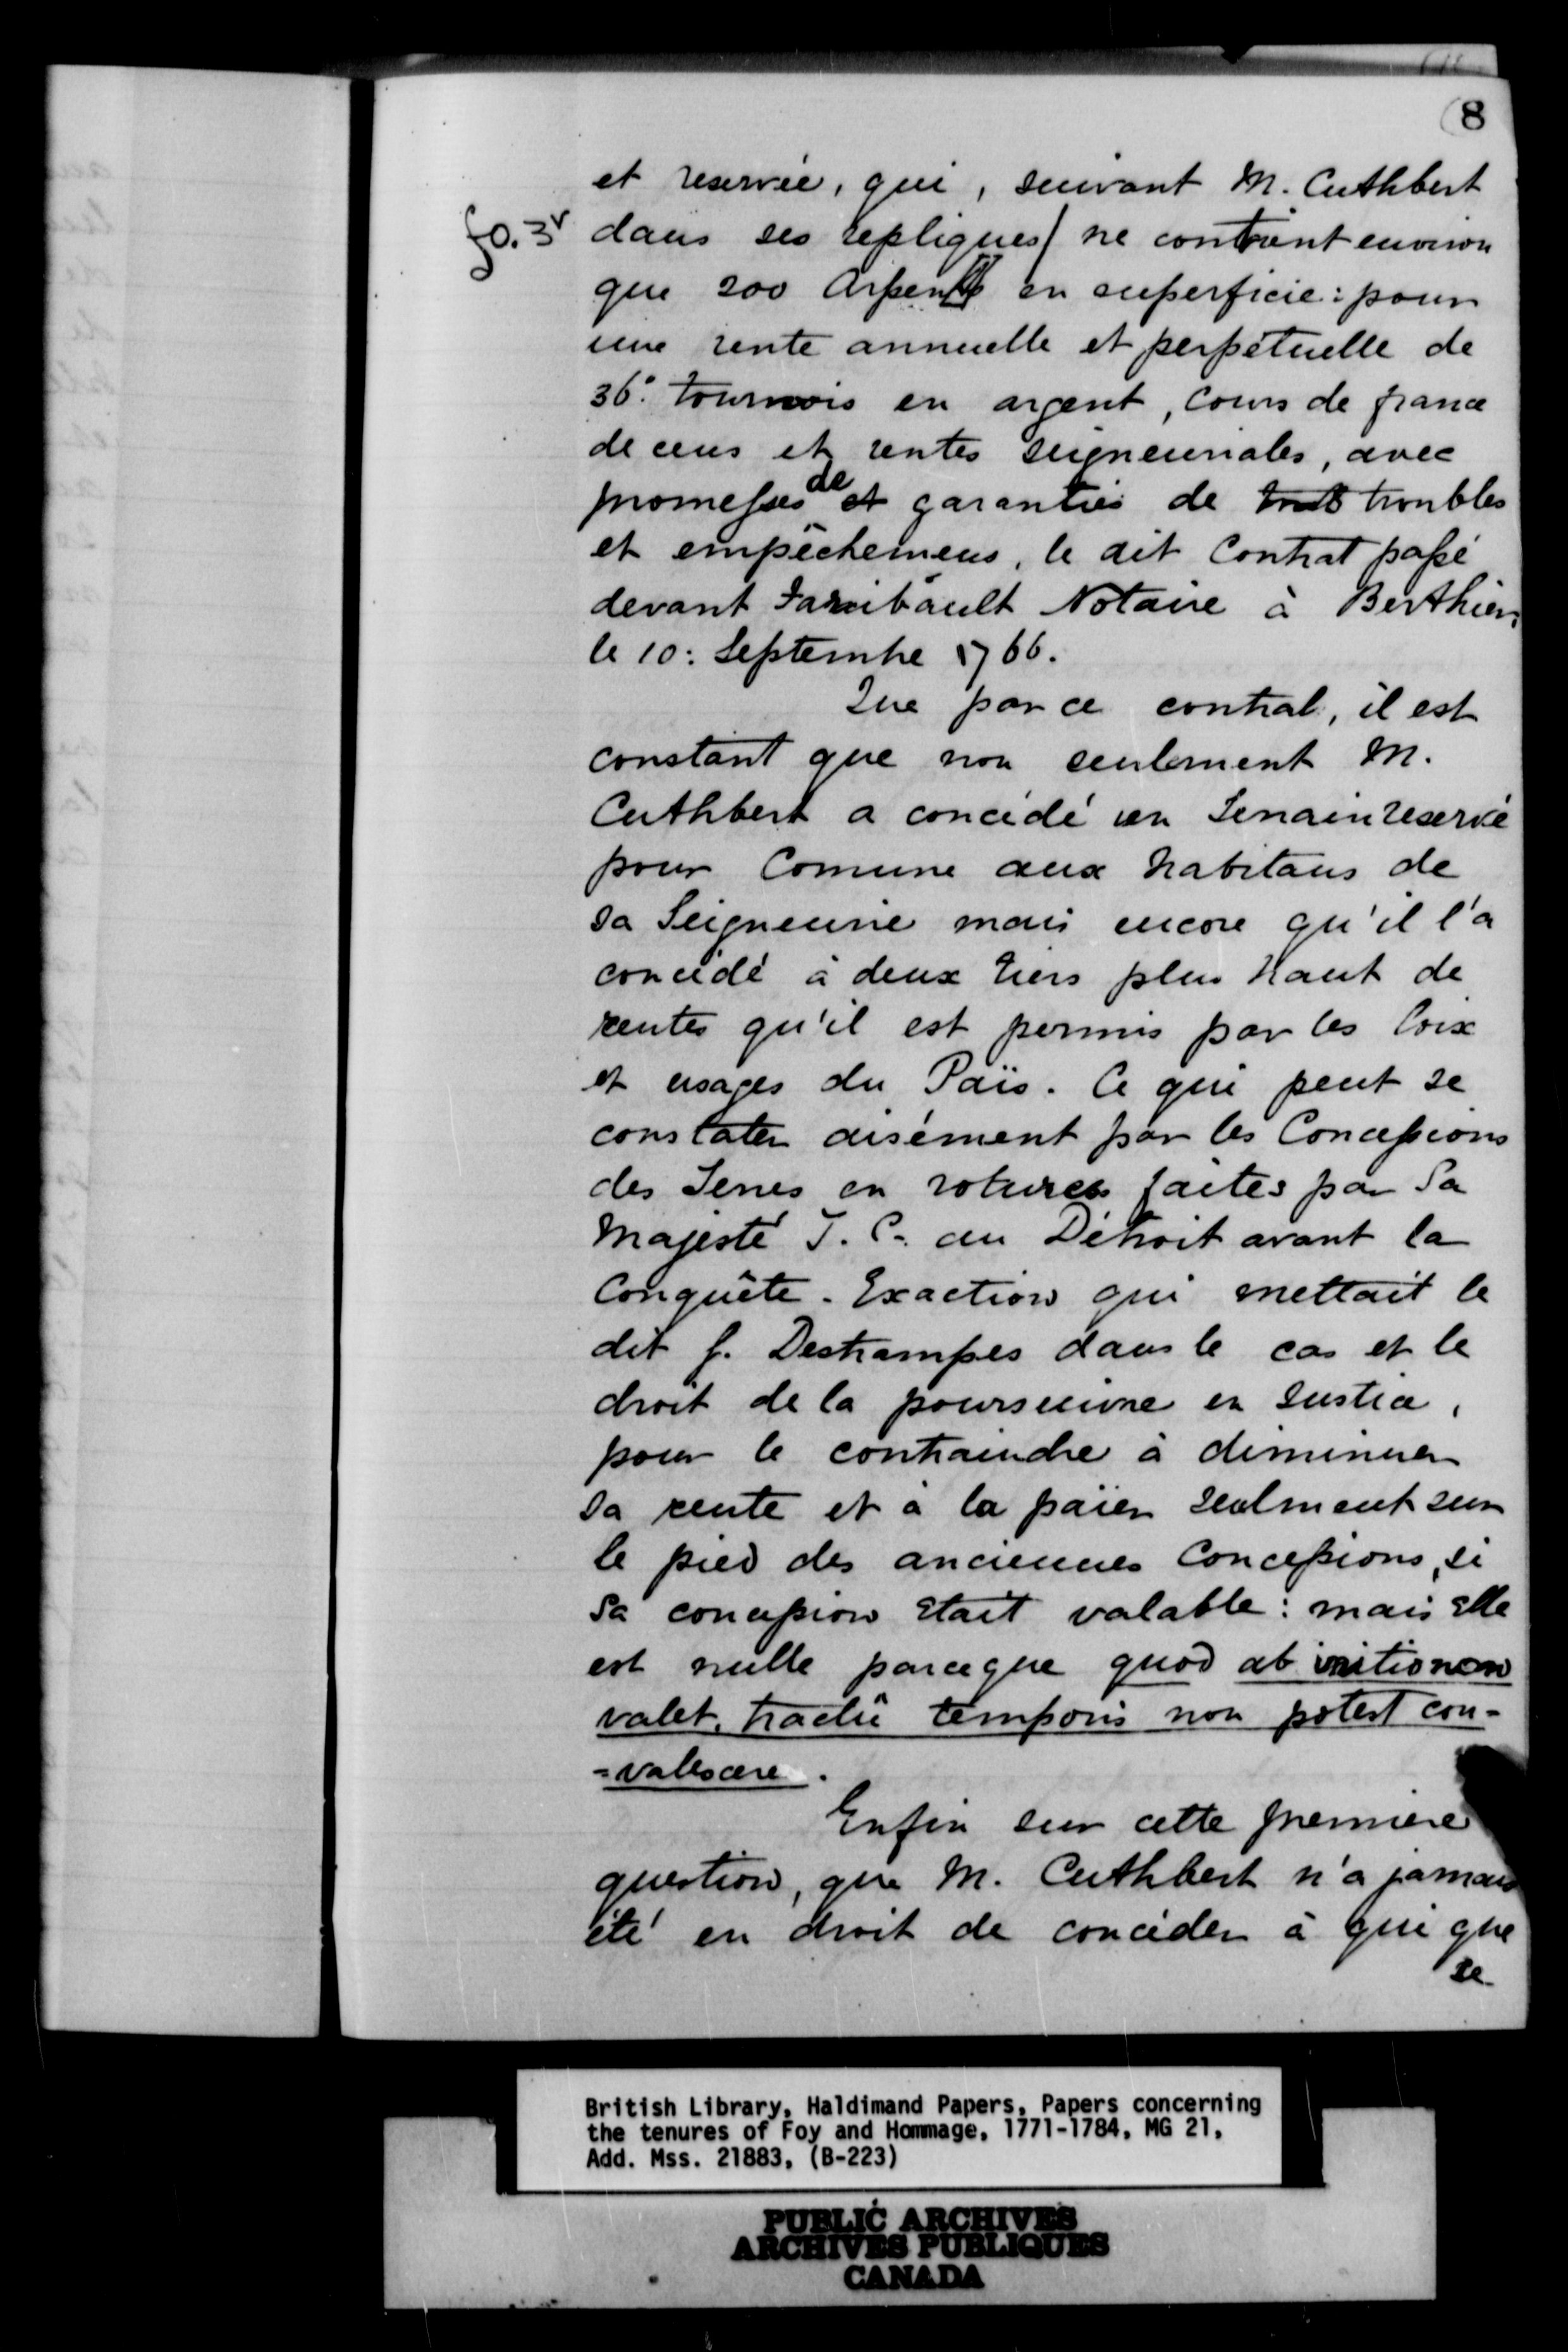 8
et reservée, qui, suivant M. Cuthbert
fo. 3v dans ses repliques/ ne contient environ
que 200 Arpents en superficie: pour
une rente annuelle et perpétuelle de
36.° tournois en argent, cours de france
de cens et rentes seigneuriales, avec
de
promesses et garanties de troubles
et empêchemens, le dit Contrat passé
devant Faribault Notaire à Berthier,
le 10: Septembre 1766.
Que par ce contrat, il est
constant que non seulement M.
Cuthbert a concédé un Terrain reservé
pour Comune aux habitans de
sa Seigneurie mais encore qu'il l'a
concédé à deux tiers plus haut de
rentes qu'il est permis par les Loix
et usages du Païs. Ce qui peut se
constater aisément par les Concessions
des Terres en rotures faites par Sa
Majesté T. C. au Détroit avant la
Conquête. Exaction qui mettait le
dit f. Destrampes dans le cas et le
droit de la poursuivre en Justice,
pour le contraindre à diminuer
sa rente et à la païer sealment sur
le pied des anciennes Concessions, si
sa concession était valable: mais elle
est nulle parceque quod ab initio non
valet, tractu temporis non potest con-
=valescere.
Enfin sur cette premiere
question, que M. Cuthbert n'a jamais
été en droit de concéder à qui que
se
British Library, Haldimand Papers, Papers concerning
the tenures of Foy and Hommage, 1771-1784, MG 21,
Add. Mss. 21883, (B-223)
PUBLIC ARCHIVES
ARCHIVES PUBLIQUES
CANADA